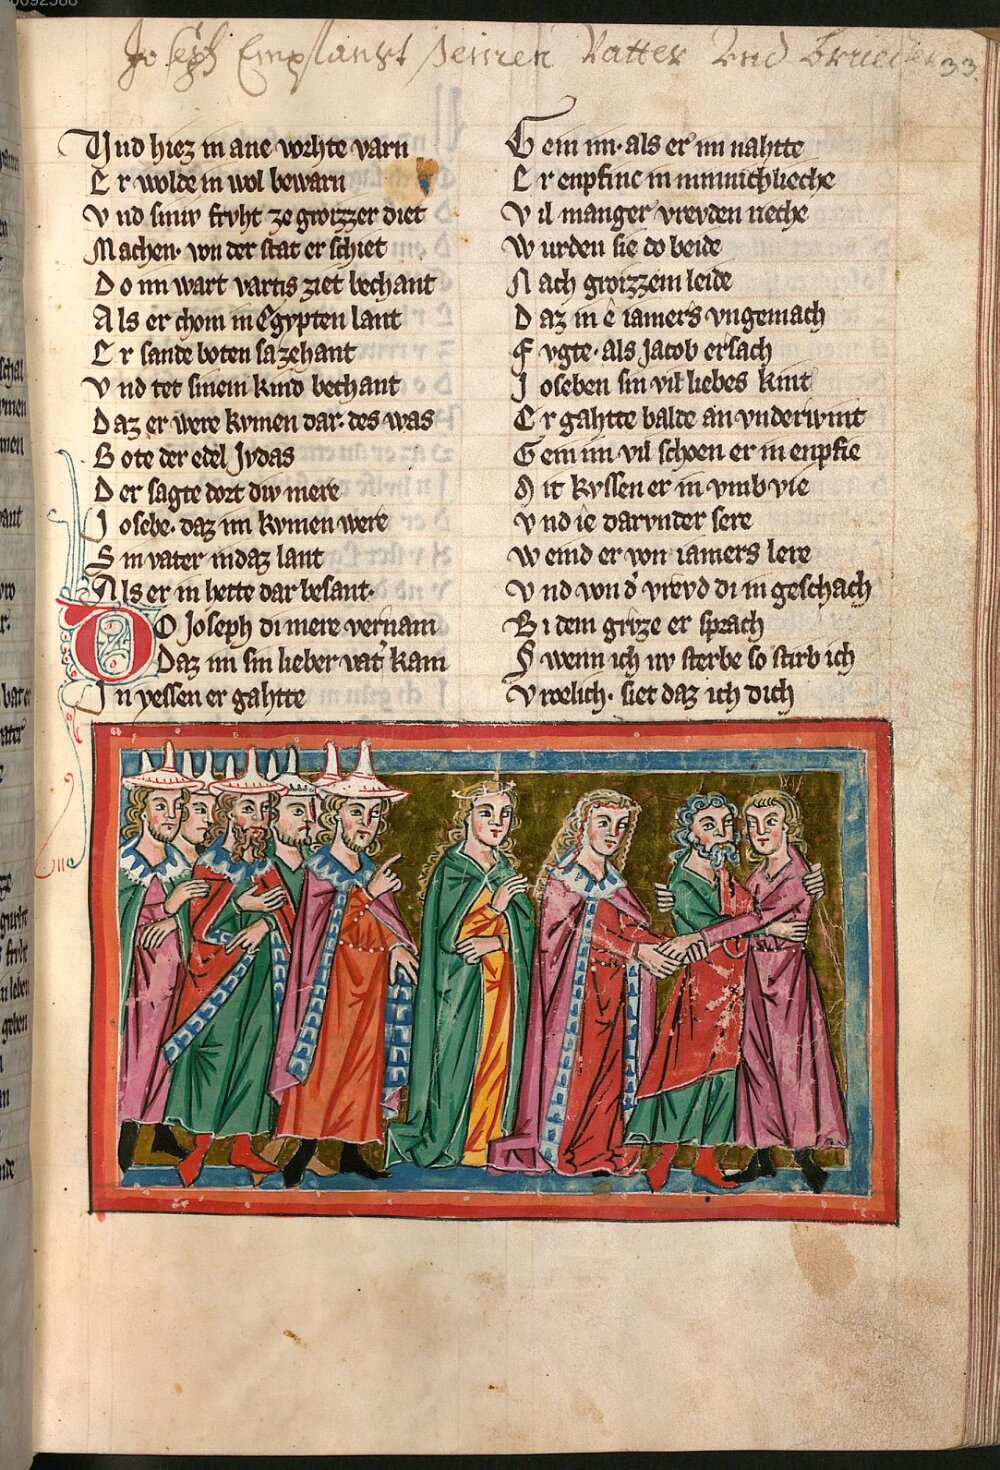 0092588
Joseph Empfangt seinen Vatter Vnd Brueder 33.
Vnd hiez in ane vorhte varn
Er wolde in wol bewarn
Vnd siniv frvht ze groizzer diet
Machen· von der stat er schiet
Do im wart vartis ziet bechant
Als er chom in Egypten lant
Er sande boten sazehant
Vnd tet sinem kind bechant
Daz er were kvmen dar· des was
Bote der edel Jvdas
Der sagte dort div mere
Josebe· daz im kvmen were
Sin vater in daz lant
Als er in hette dar besant·
DO Joseph di mere vernam
Daz im sin lieber vat' kam
In yessen er gahtte
Gein im· als er im nahtte
Er enpfinc in minnichlieche
Vil manger vrevden rieche
Wurden sie do beide
Nach groizzem leide
Daz in e iamers vngemach
Fvgte· als Jacob ersach
Joseben sin vil liebes kint
Er gahtte balde an vnderwint
Gein im vil schoen er in enpfie
Mit kvssen er in vmb vie
Vnd ie darvnder sere
Weind er von iamers lere
Vnd von d' vrevd di im geschach
Bi dem grvze er sprach
Swenn ich nv sterbe so stirb ich
Vroelich· siet daz ich dich